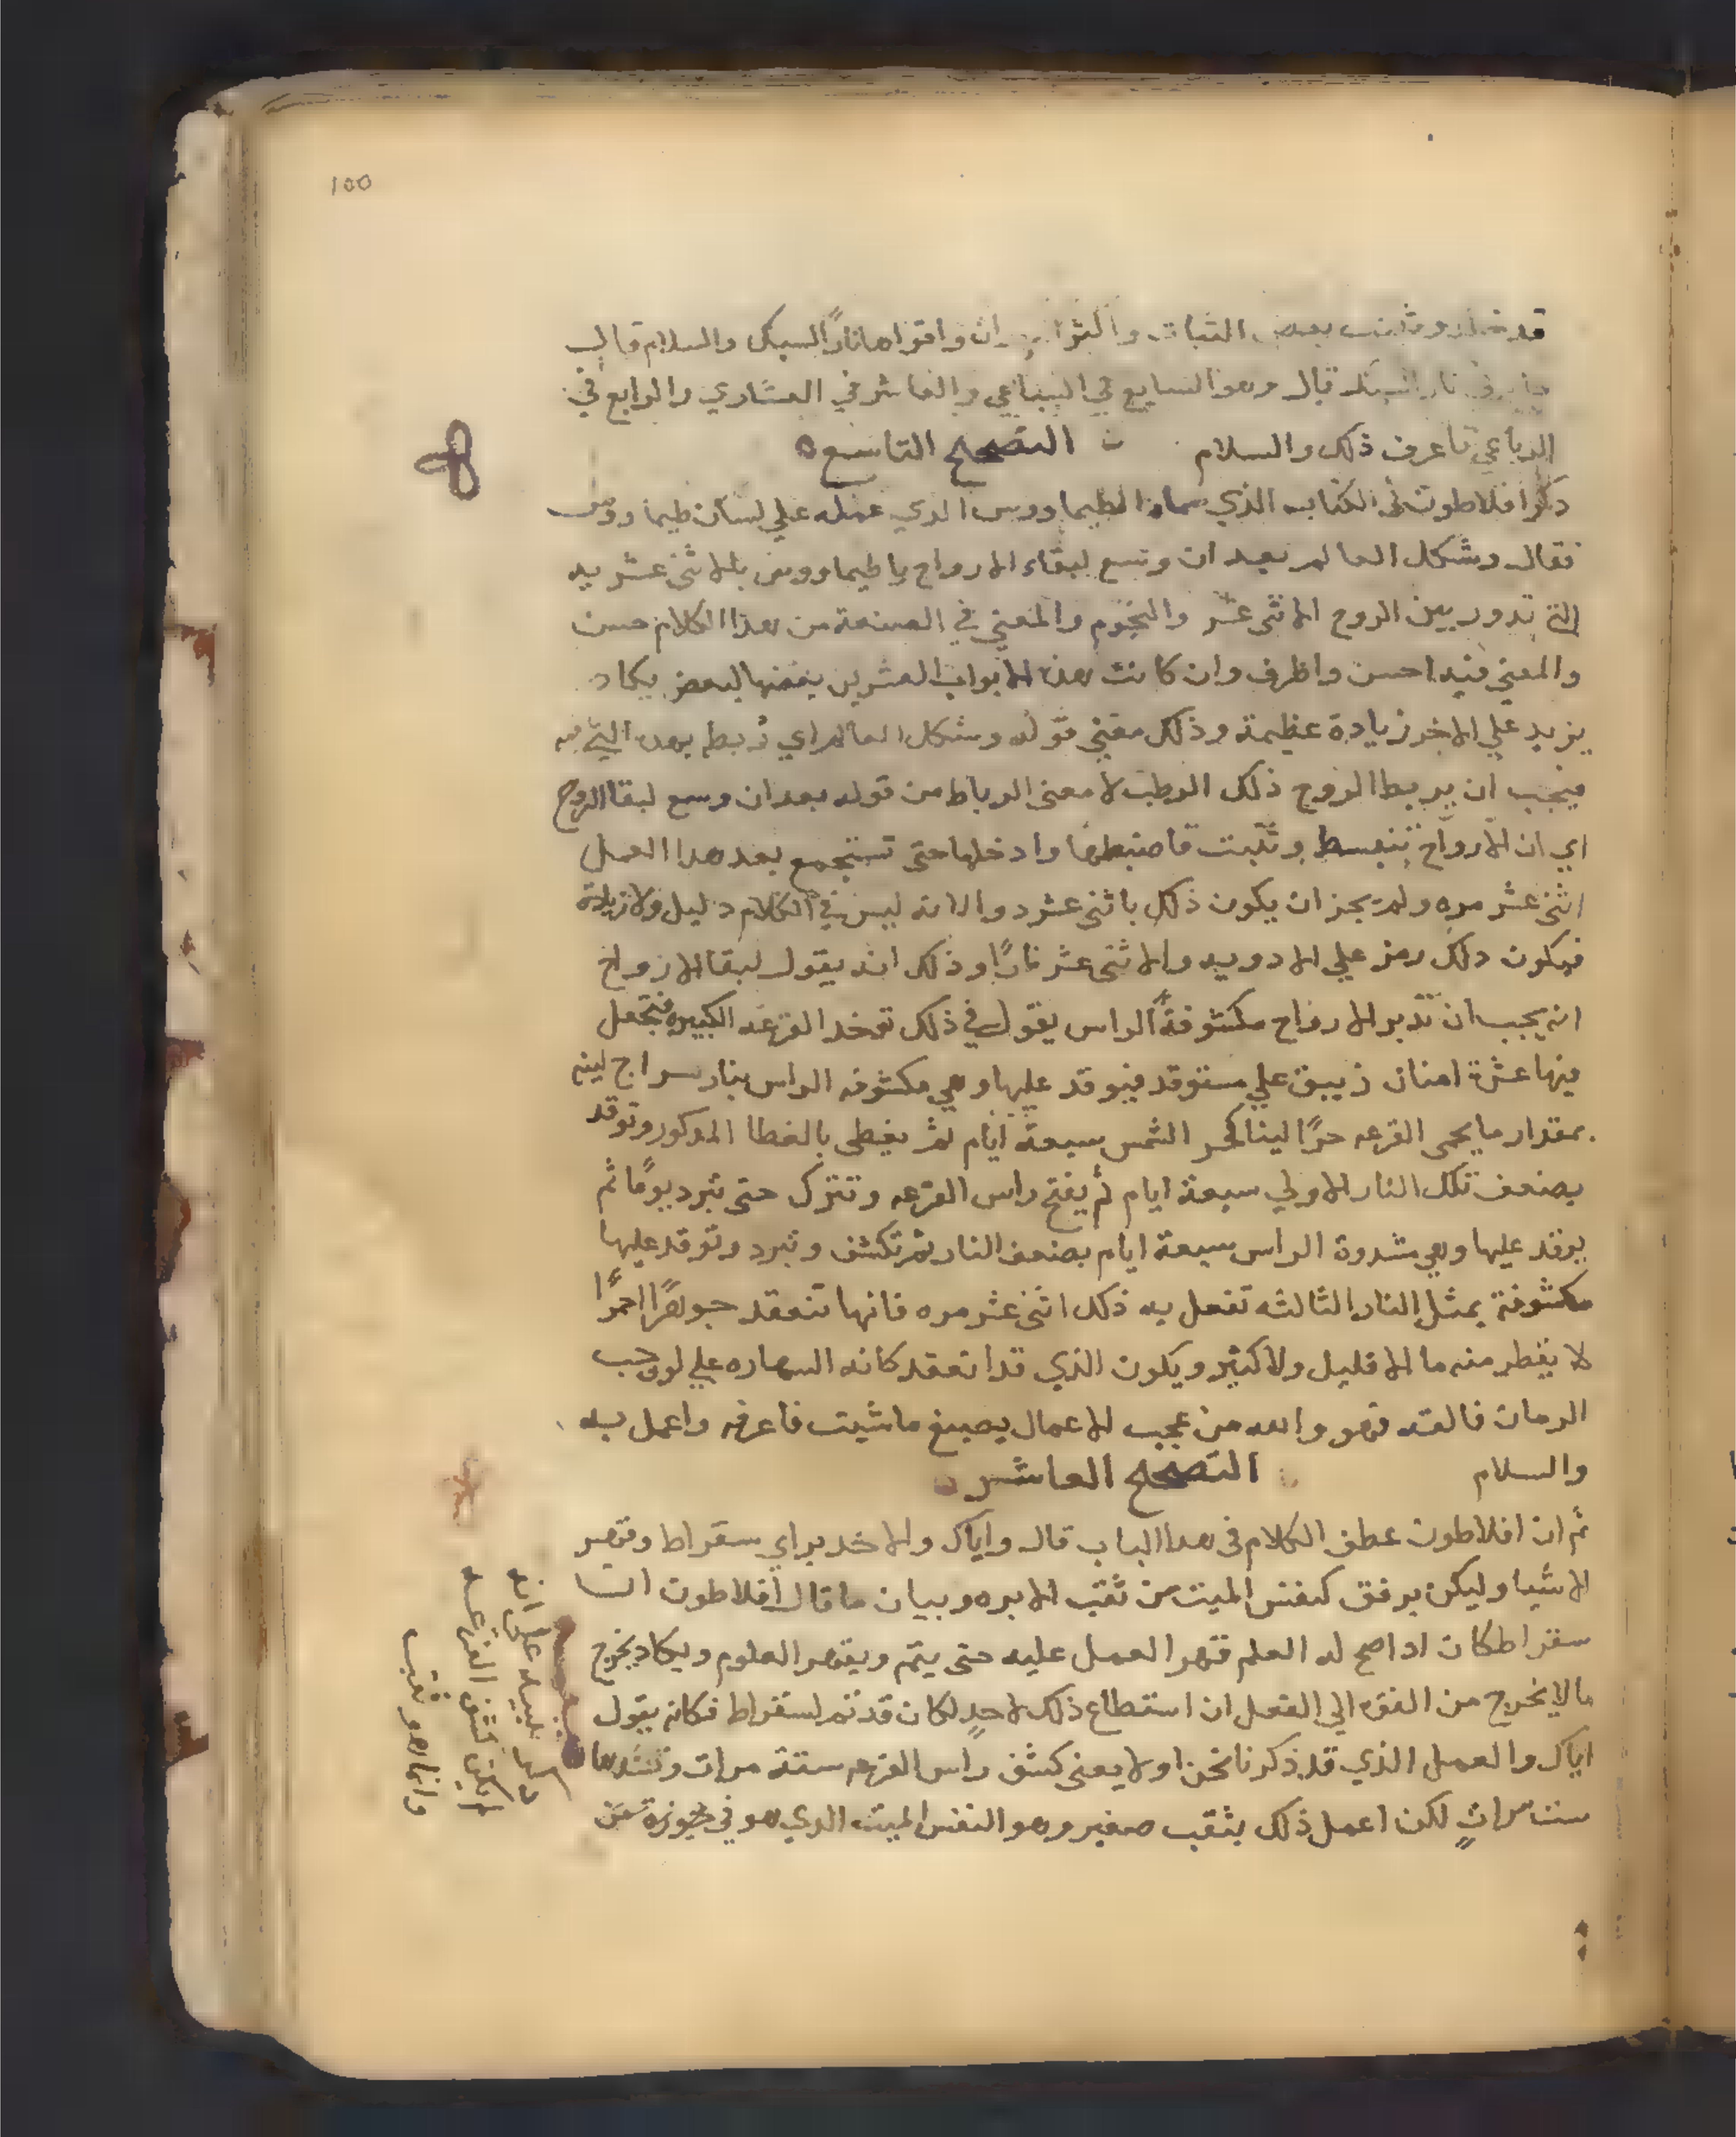 100
قد ثبت بعض الثبات واقواها ناراً السبك والسلام قال
في نار السبك قال وهو السابع في السباعي والعاشر في العشاري والرابع في
الرباعي فاعرف ذلك والسلام التصحيح التاسع
ذكر افلاطون في الكتاب الذي سماه الطيماووس الذي عمله علي لسان طيماووس
فقال وشكل العالم بعد ان وسع لبقاء الارواح يا طيماووس بالاثني عشريه
التي تدور بين الروح الاثني عشر والنجوم والمعني في الصنعة من هذا الكلام حسن
والمعني فيه احسن واظرف وان كانت هذه الابواب العشرين بعضها لبعض يكاد
يزيد علي الاخر زيادة عظيمة وذلك معني قوله وشكل العالم اي ربط بهذه التي فيه
فيجب ان يربط الروح ذلك الرطب لا معني الرباط من قوله بعد ان وسع لبقا الروح
اي ان الارواح تنبسط وتثبت فاضبطها وادخلها حتي تستجمع بعد هدا العمل
اثني عشر مره ولم يجز ان يكون ذلك باثني عشر دوا لانه ليس في الكلام دليل ولا زيادة
فيكون دلك رمز علي الادويه والاثني عشر ناراً وذلك انه يقول لبقا الارواح
انه يجب ان تدبر الارواح مكشوفة الراس يقول في ذلك توخد القرعه الكبيره فتجعل
فيها عشرة امنان زيبق علي مستوقد فيوقد عليها وهي مكشوفه الراس بنار سراج لينه
بمقدار ما يحمي القرعه حرًا لينا كحر الشمس سبعة ايام ثم يغطي بالغطا المدكور وتوقد
بضعف تلك النار الاولي سبعة ايام ثم يفتح راس القرعه وتترك حتي تبرد يومًا ثم
يوقد عليها وهي مشدودة الراس سبعة ايام بضعف النار ثم تكشف وتبرد وتوقد عليها
مكشوفة بمثل النار الثالثه تفعل به ذلك اثني عشر مره فانها تنعقد جوهرًا احمرًا
لا يقطر منه ما الا قليل ولا كثير ويكون الذي قد انعقد كانه السهاره علي لون حب
الرمان فالقه فهو والله من عجب الاعمال يصبغ ما شيت فاعرفه واعمل به
والسلام التصحيح العاشر
ثم ان افلاطون عطف الكلام في هدا الباب قال واياك والاخد براي سقراط وقهر
الاشيا وليكن برفق كنفس الميت من ثقب الابره وبيان ما قال افلاطون ان
سقراط كان ادا صح له العلم قهر العمل عليه حتي يتم ويقهر العلوم ويكاد يخرج
ما لا يخرج من القوه الي الفعل ان استطاع ذلك لاحدٍ لكان قد تم لسقراط فكانه يقول
اياك والعمل الذي قد ذكرنا نحن اولا يعني كشف راس القرعه ستة مرات وتشدها
ست مراتٍ لكن اعمل ذلك بثقب صغير وهو النفس الميت الدي هو في
تنبيه علي انه
كشف القرعه
وانما هو ثقب